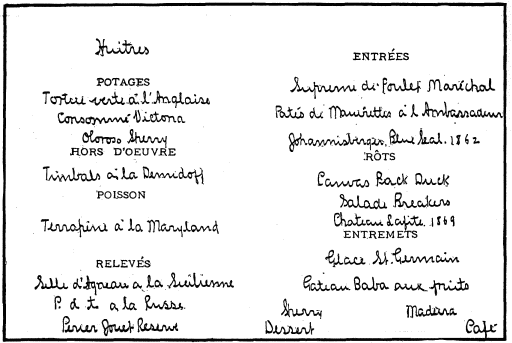 Huitres
POTAGES
Tortue verte à l'Anglaise
Consommé Victoria
Oloroso Sherry
HORS D'OEUVRE
Timbals a la Demidoff
POISSON
Terrapine à la Maryland
RELEVÉS
Selle d'Agneau a la Sicilienne
P. d t. a la Russe
Perier Jouet Reserve
ENTRÉES
Supreme de Foulet Maréchal
Patés de à l'Ambassadeur
Johannisberger, Blue Seal. 1862
RÔTS
Canvas Back Duck
Salade Breakers
Chateau Lafite. 1869
ENTREMETS
Glace St. Germain
Gateau Baba aux fruits
Sherry Madera
Dessert Café